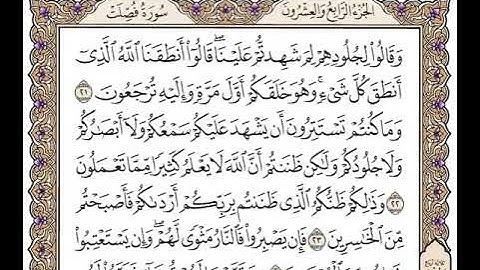 الجزء الرابع والعشرون
سورة فصلت
وَقَالُوا۟ لِجُلُودِهِمْ لِمَ شَهِدتُّمْ عَلَيْنَا ۖ قَالُوٓا۟ أَنطَقَنَا ٱللَّهُ ٱلَّذِىٓ
أَنطَقَ كُلَّ شَىْءٍ ۚ وَهُوَ خَلَقَكُمْ أَوَّلَ مَرَّةٍ وَإِلَيْهِ تُرْجَعُونَ ٢١
وَمَا كُنتُمْ تَسْتَتِرُونَ أَن يَشْهَدَ عَلَيْكُمْ سَمْعُكُمْ وَلَآ أَبْصَٰرُكُمْ
وَلَا جُلُودُكُمْ وَلَٰكِن ظَنَنتُمْ أَنَّ ٱللَّهَ لَا يَعْلَمُ كَثِيرًا مِّمَّا تَعْمَلُونَ
٢٢ وَذَٰلِكُمْ ظَنُّكُمُ ٱلَّذِى ظَنَنتُم بِرَبِّكُمْ أَرْدَىٰكُمْ فَأَصْبَحْتُم
مِّنَ ٱلْخَٰسِرِينَ ٢٣ فَإِن يَصْبِرُوا۟ فَٱلنَّارُ مَثْوًى لَّهُمْ ۖ وَإِن يَسْتَعْتِبُوا۟